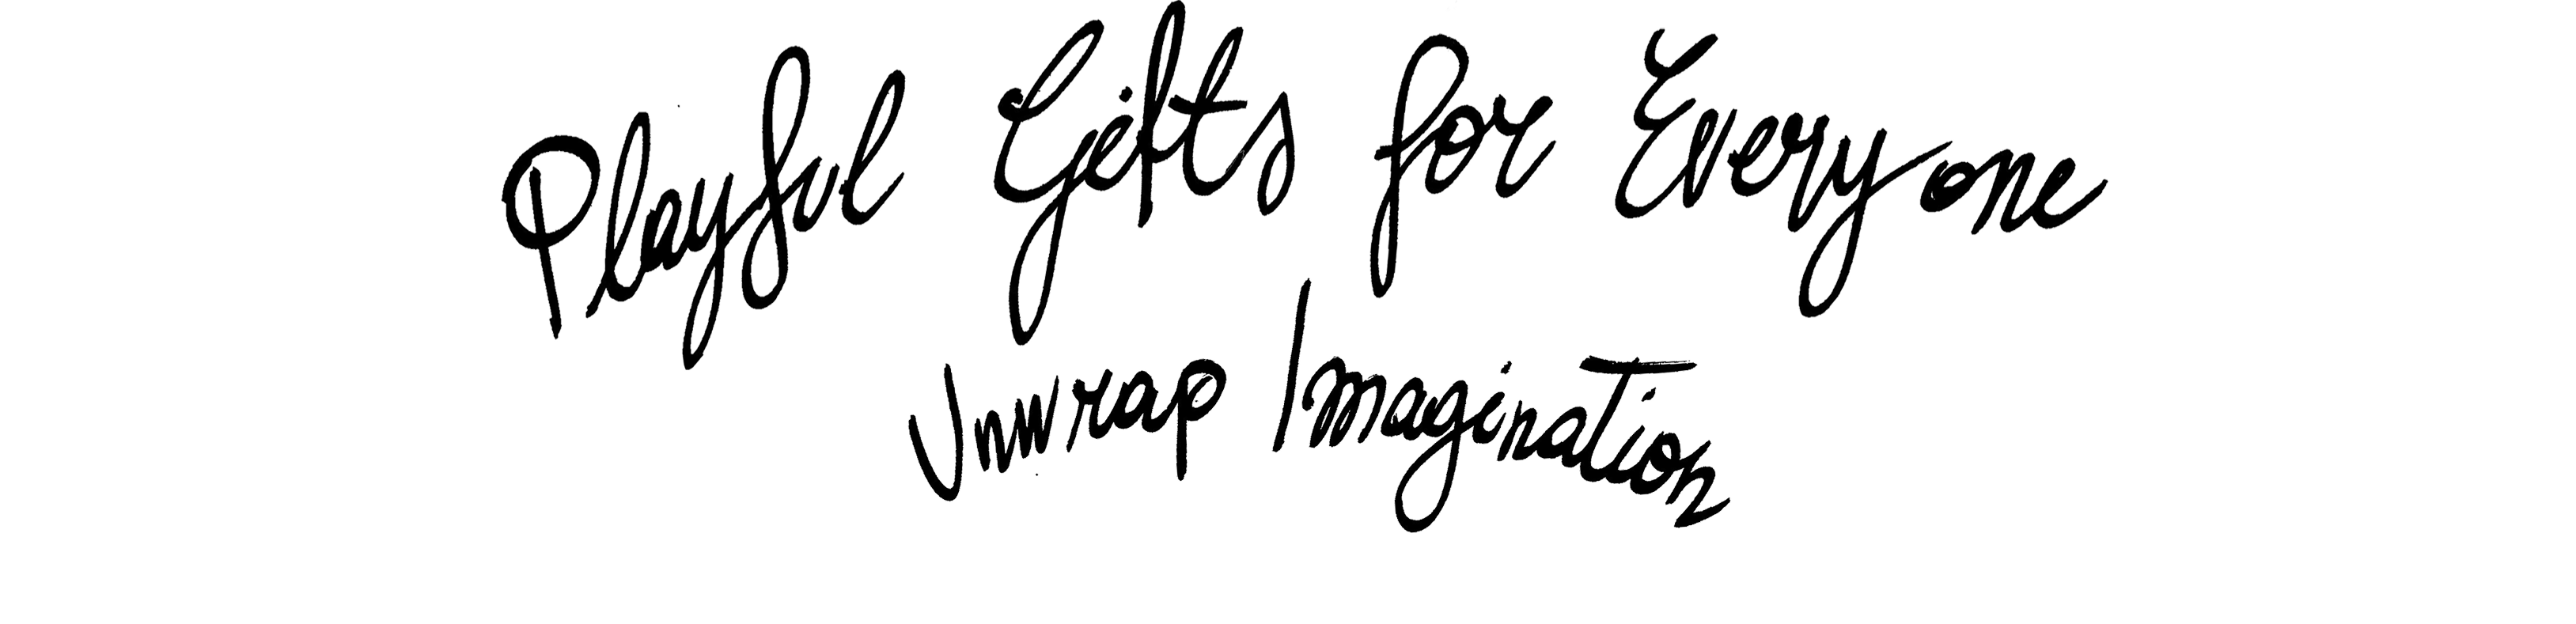 Playful Gifts for Everyone
Unwrap Imagination